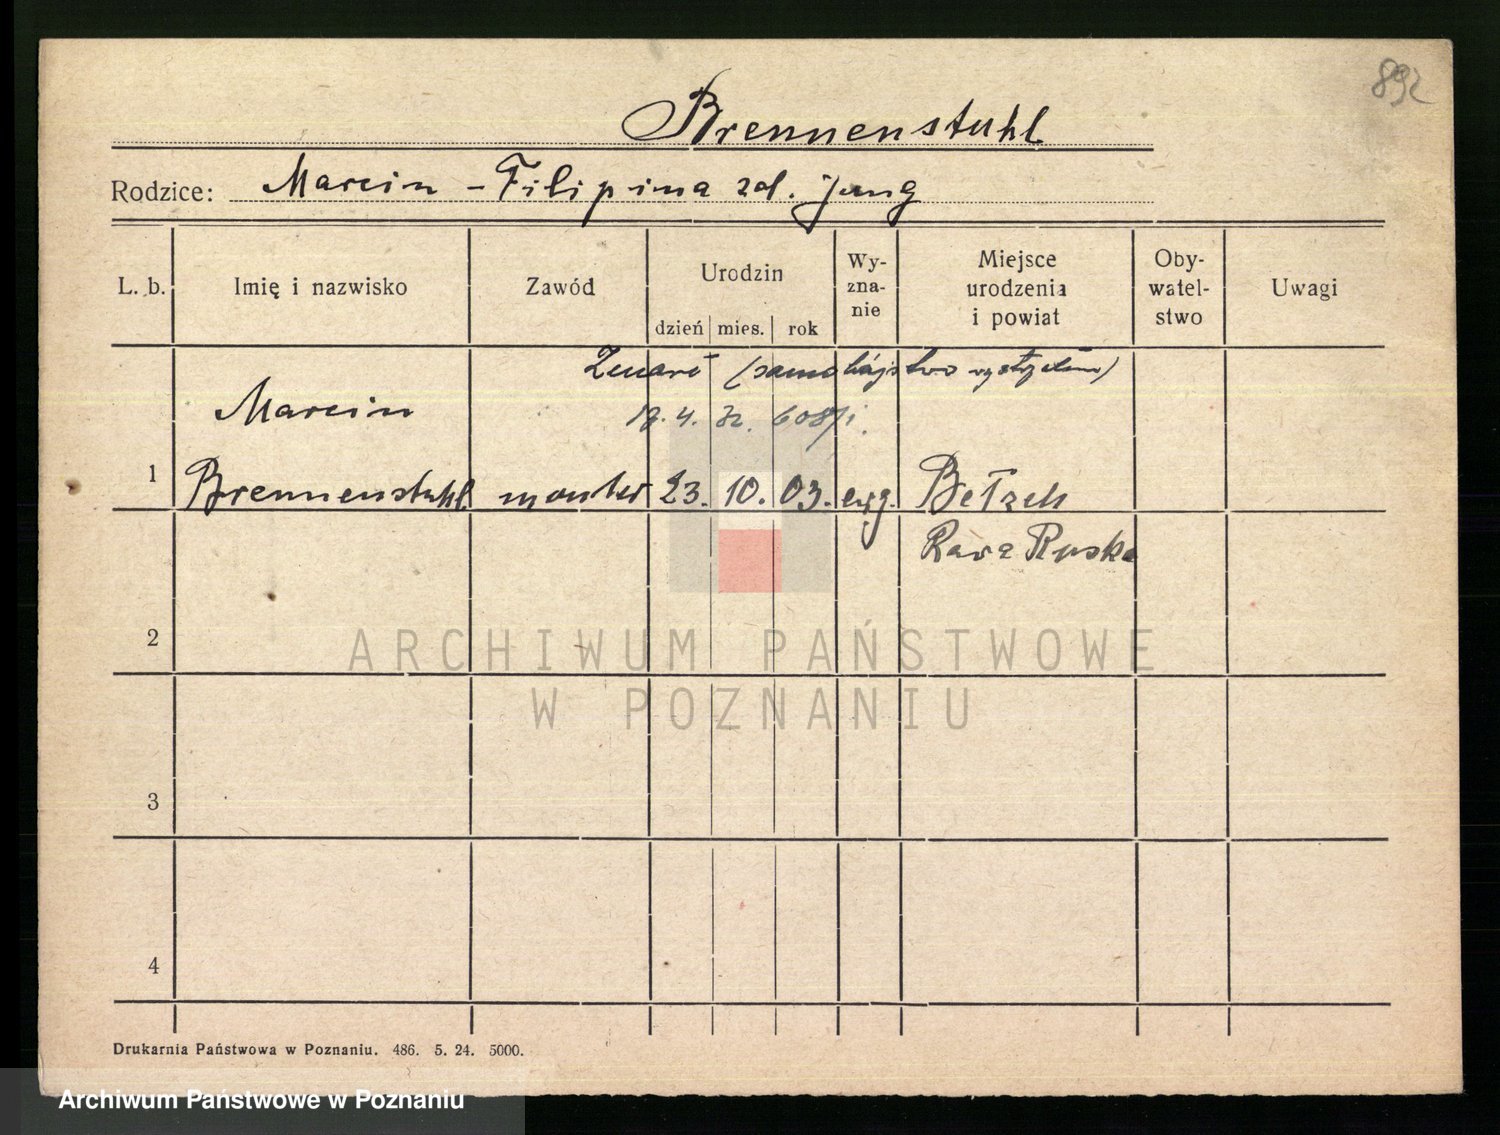 892
Brennenstuhl
Rodzice: Marcin - Filipina zd. Jung
L. b. Imię i nazwisko Zawód Urodzin Wy- zna- nie Miejsce urodzenia i powiat Oby- watel- stwo Uwagi
dzień mies. rok
Zmarł (samobójstwo wystrzałem)
Marcin 17. 4. 32. 608/I.
1 Brennenstuhl monter 23. 10. 03. ewg. Bełzek
Rawa Ruska
2
ARCHIWUM PAŃSTWOWE
W POZNANIU
3
4
Drukarnia Państwowa w Poznaniu. 486. 5. 24. 5000.
Archiwum Państwowe w Poznaniu